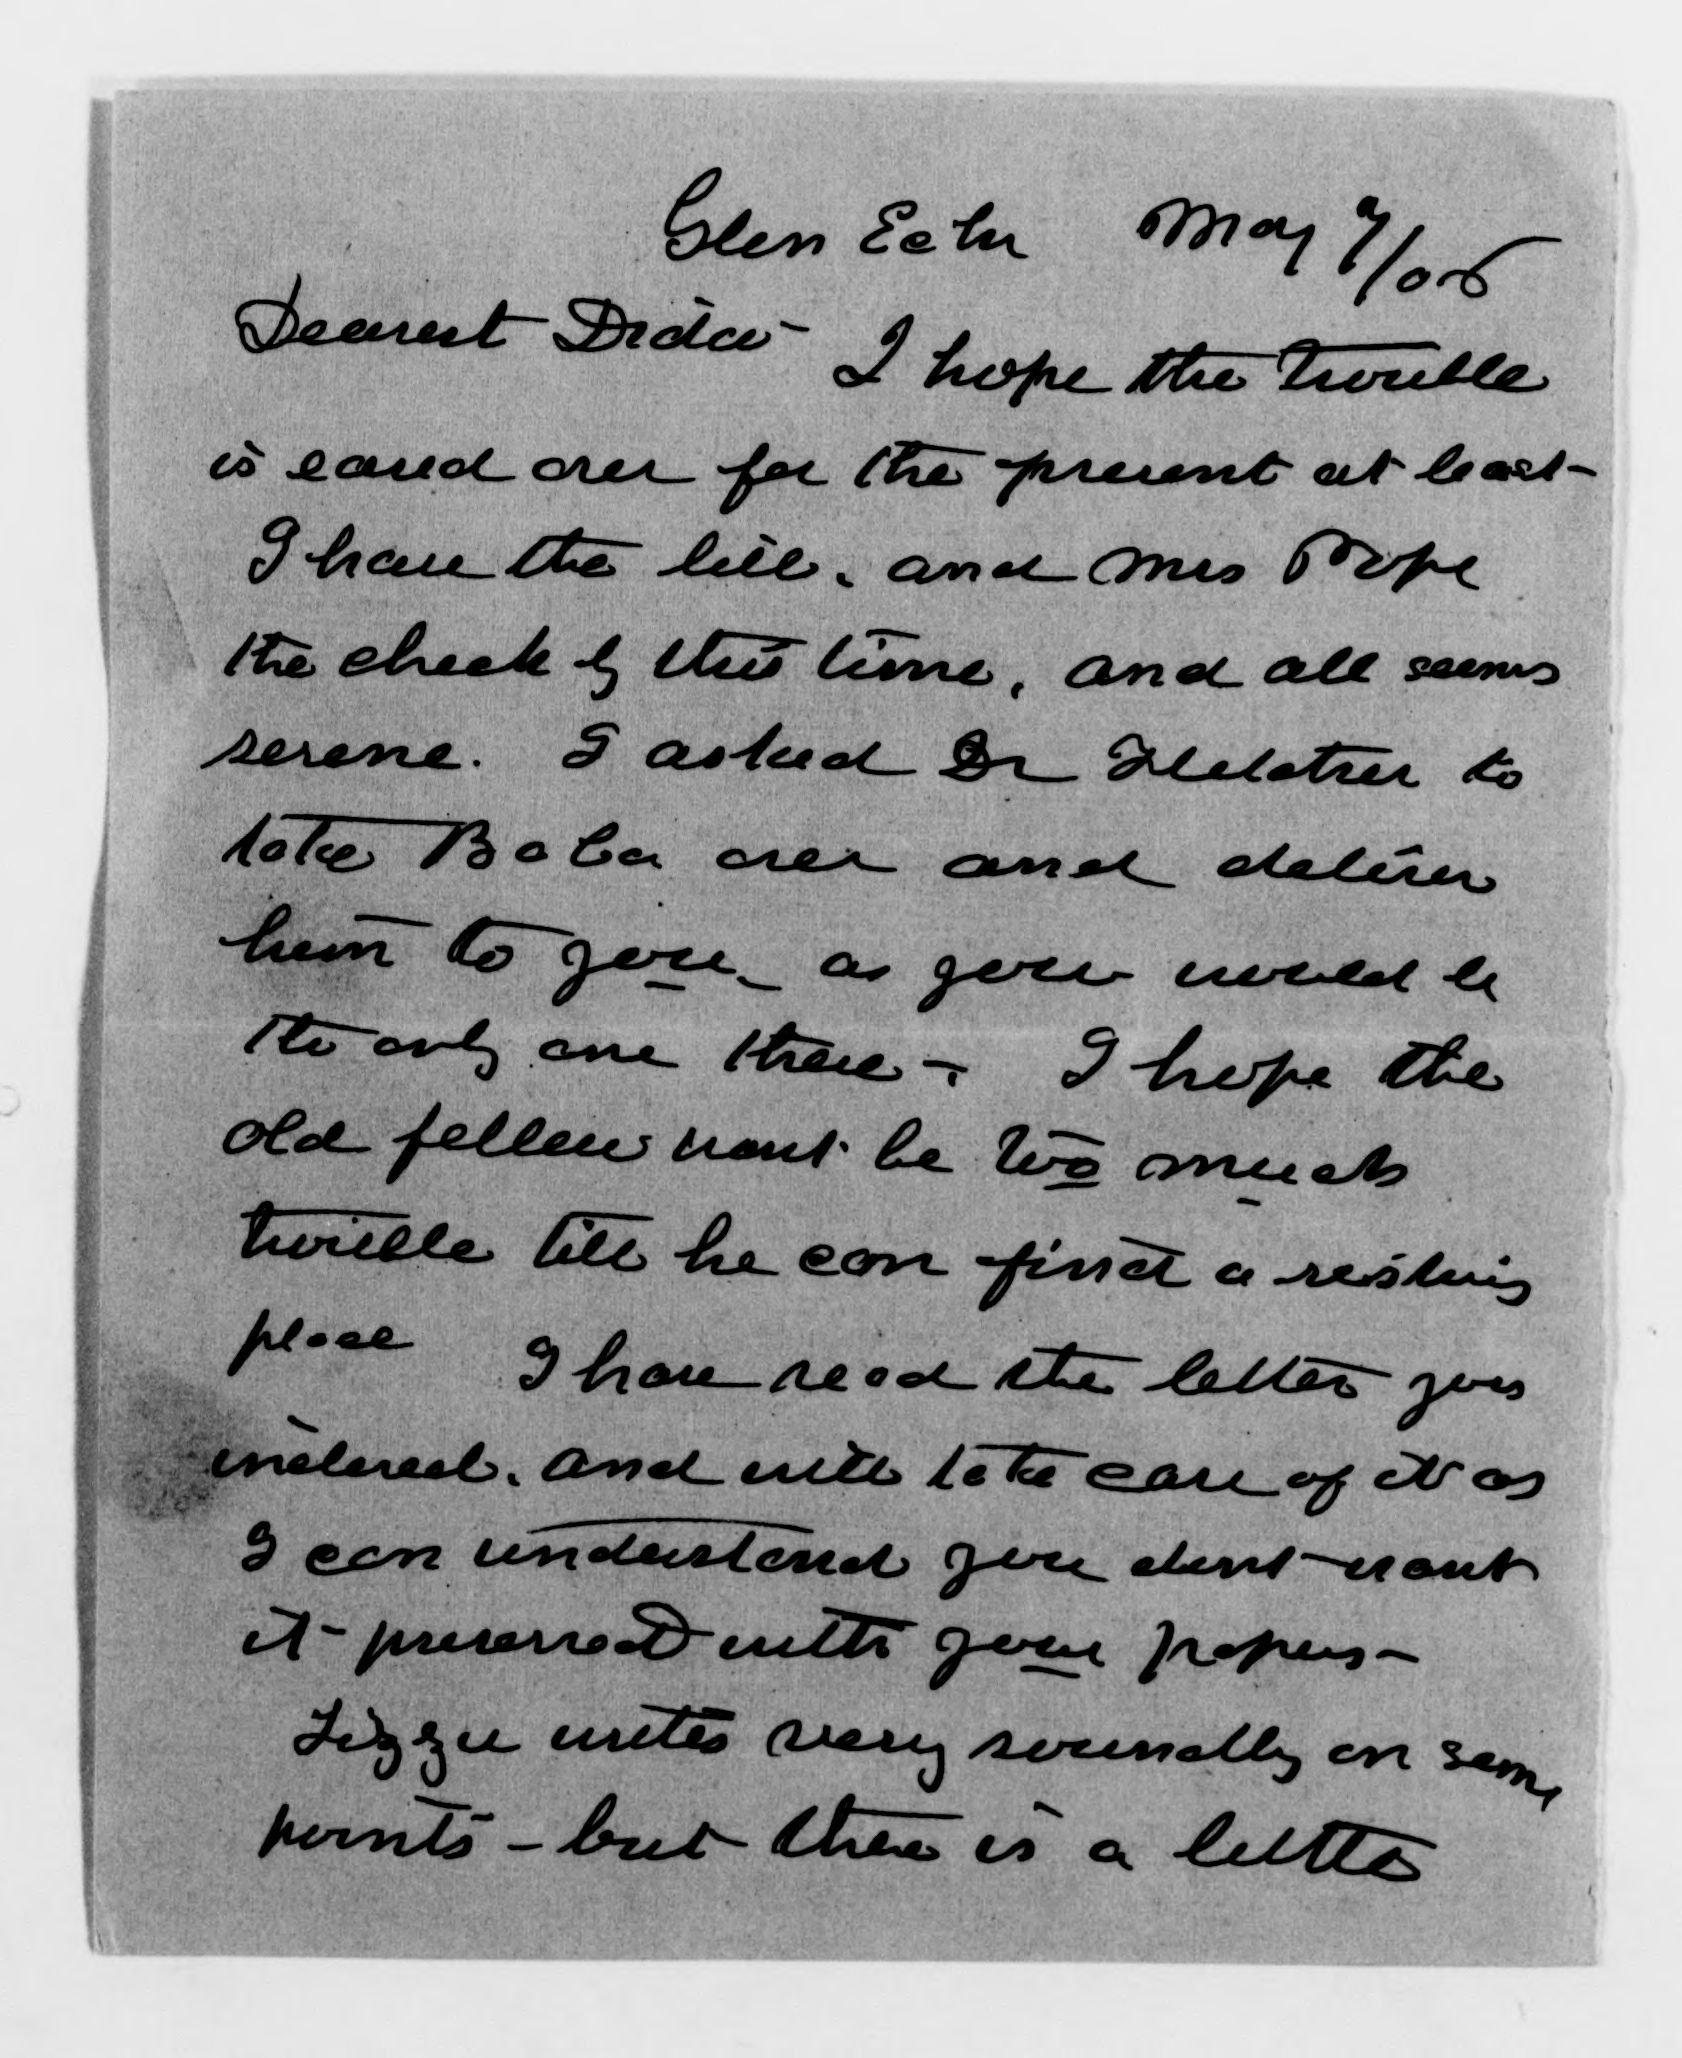 Glen Echo May 7/05
Dearest Dida - I hope the trouble
is eased over for the present at least -
I have the bill, and Mrs Pope
the check by this time, and all seems
serene. I asked Dr to
take Baba over and deliver
him to you, as you would be
the only one there -. I hope the
old fellow wont be too much
trouble till he can find a resting
place I have read the letter you
inclosed, and will take care of it as
I can understand you dont want
it preserved with your papers -
Lizzie writes very soundly on some
points - but there is a little